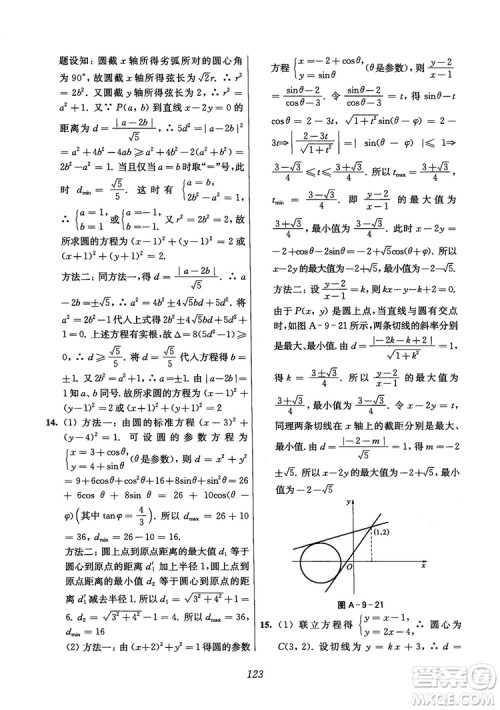 题设知：圆截 x 轴所得劣弧所对的圆心角
为 90°，故圆截 x 轴所得弦长为 √2r. ∴ r²
= 2b². 又圆截 y 轴所得弦长为 2，∴ r² =
a² + 1. ∴ a² + 1 = 2b². 又∵ P(a, b) 到直线 x − 2y = 0 的
距离为 d = |a − 2b|/√5，∴ 5d² = |a − 2b|²
= a² + 4b² − 4ab ≥ a² + 4b² − 2(a² + b²)
= 2b² − a² = 1. 当且仅当 a = b 时取“=”号，此
时，d_min = √5/5. 这时有 {a = b
∴ {a = 1 {b = 1 或 {a = −1 {b = −1. ∴ r² = 2b² = 2. 故
所求圆的方程为 (x − 1)² + (y − 1)² = 2 或
(x + 1)² + (y + 1)² = 2.
方法二：同方法一，得 d = |a − 2b|/√5，∴ a −
2b = ±√5d，∴ a² = 4b² ± 4√5bd + 5d². 将
a² = 2b² − 1 代入上式得 2b² ± 4√5bd + 5d²
+ 1 = 0. 上述方程有实根，故 Δ = 8(5d² −
1) ≥ 0，∴ d ≥ √5/5. 将 d = √5/5 代入方程得 b =
±1. 又 r² = 2b² = 2，a² = 1. 由 |a − 2b| =
1 知 a、b 同号. 故所求圆的方程为 (x − 1)²
+ (y − 1)² = 2 或 (x + 1)² + (y + 1)² = 2.
14. (1) 方法一：由圆的标准方程 (x − 3)² +
(y − 4)² = 1. 可设圆的参数方程为
{x = 3 + cosθ {y = 4 + sinθ (θ 是参数)，∴ d = x² + y²
= 9 + 6cosθ + cos²θ + 16 + 8sinθ + sin²θ =
26 + 6cosθ + 8sinθ = 26 + 10cos(θ −
φ) (其中 tanφ = 4/3). 所以 d_max = 26 + 10
= 36，d_min = 26 − 10 = 16
方法二：圆上点到原点距离的最大值 d′₁ 等
于圆心到原点的距离 d₁ 加上半径 1，圆上
点到原点距离的最小值 d′₂ 等于圆心到原点
距离 d′₁ 减去半径 1. ∴ d₁ = √(3² + 4²) + 1
= 6. d₂ = √(3² + 4²) − 1 = 4. 所以 d_max =
36，d_min = 16
(2) 方法一：由 (x + 2)² + y² = 1 得圆的参数
方程 {x = −2 + cosθ {y = sinθ (θ 是参数)，则 (y − 2)/(x − 1) =
(sinθ − 2)/(cosθ − 3). 令 (sinθ − 2)/(cosθ − 3) = t，得 sinθ −
tcosθ = 2 − 3t. ∴ √(1 + t²)sin(θ − φ) = 2 −
3t ⇒ |(2 − 3t)/√(1 + t²)| = |sin(θ − φ)| ≤ 1 ⇒
(3 − √3)/4 ≤ t ≤ (3 + √3)/4. 所以 t_max = (3 + √3)/4，
t_min = (3 − √3)/4. 即 (y − 2)/(x − 1) 的最大值为
(3 + √3)/4，最小值为 (3 − √3)/4. 此时 x − 2y =
−2 + cosθ − 2sinθ = −2 + √5cos(θ + φ). 所以
x − 2y 的最大值为 −2 + √5，最小值为 −2 −
√5. 方法二：设 (y − 2)/(x − 1) = k，得 kx − y − k +
2 = 0，
由于 P(x, y) 是圆上点，当直线与圆有交点
时，如图 A－9－21，两条切线的斜率分别是
最大、最小值. 由 d = |−2k − k + 2|/√(1 + k²) = 1，得
k = (3 ± √3)/4. 所以 (y − 2)/(x − 1) 的最大值为
(3 + √3)/4，最小值为 (3 − √3)/4. 令 x − 2y = m，
同理两条切线在 x 轴上的截距分别是最大、
最小值. 由 d = |−2 − m|/√5 = 1，得 m = −2 ±
√5. 所以 x − 2y 的最大值为 −2 + √5，最小值
为 −2 − √5.
y
(1,2)
O
x
图 A－9－21
15. (1) 联立方程得 {y = x − 1, ∴ 圆心为
C(3, 2). 设切线的方程为 y = kx + 3，d =
123